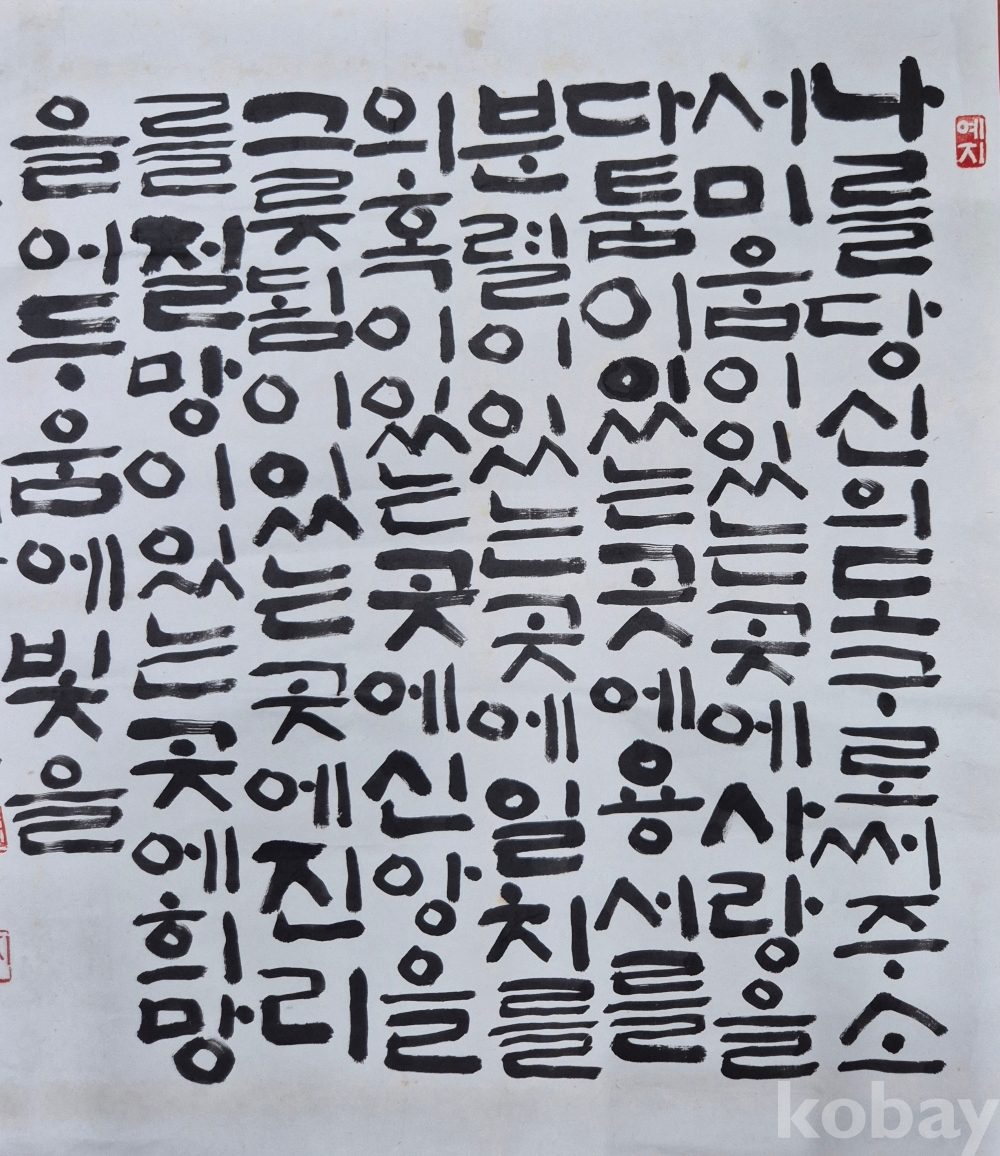 예지
나를당신의도구로써주소
서미움이있는곳에사랑을
다툼이있는곳에용서를
분렬이있는곳에일치를
의혹이있는곳에신앙을
그릇됨이있는곳에진리
를절망이있는곳에희망
을어두움에빛을
kobay